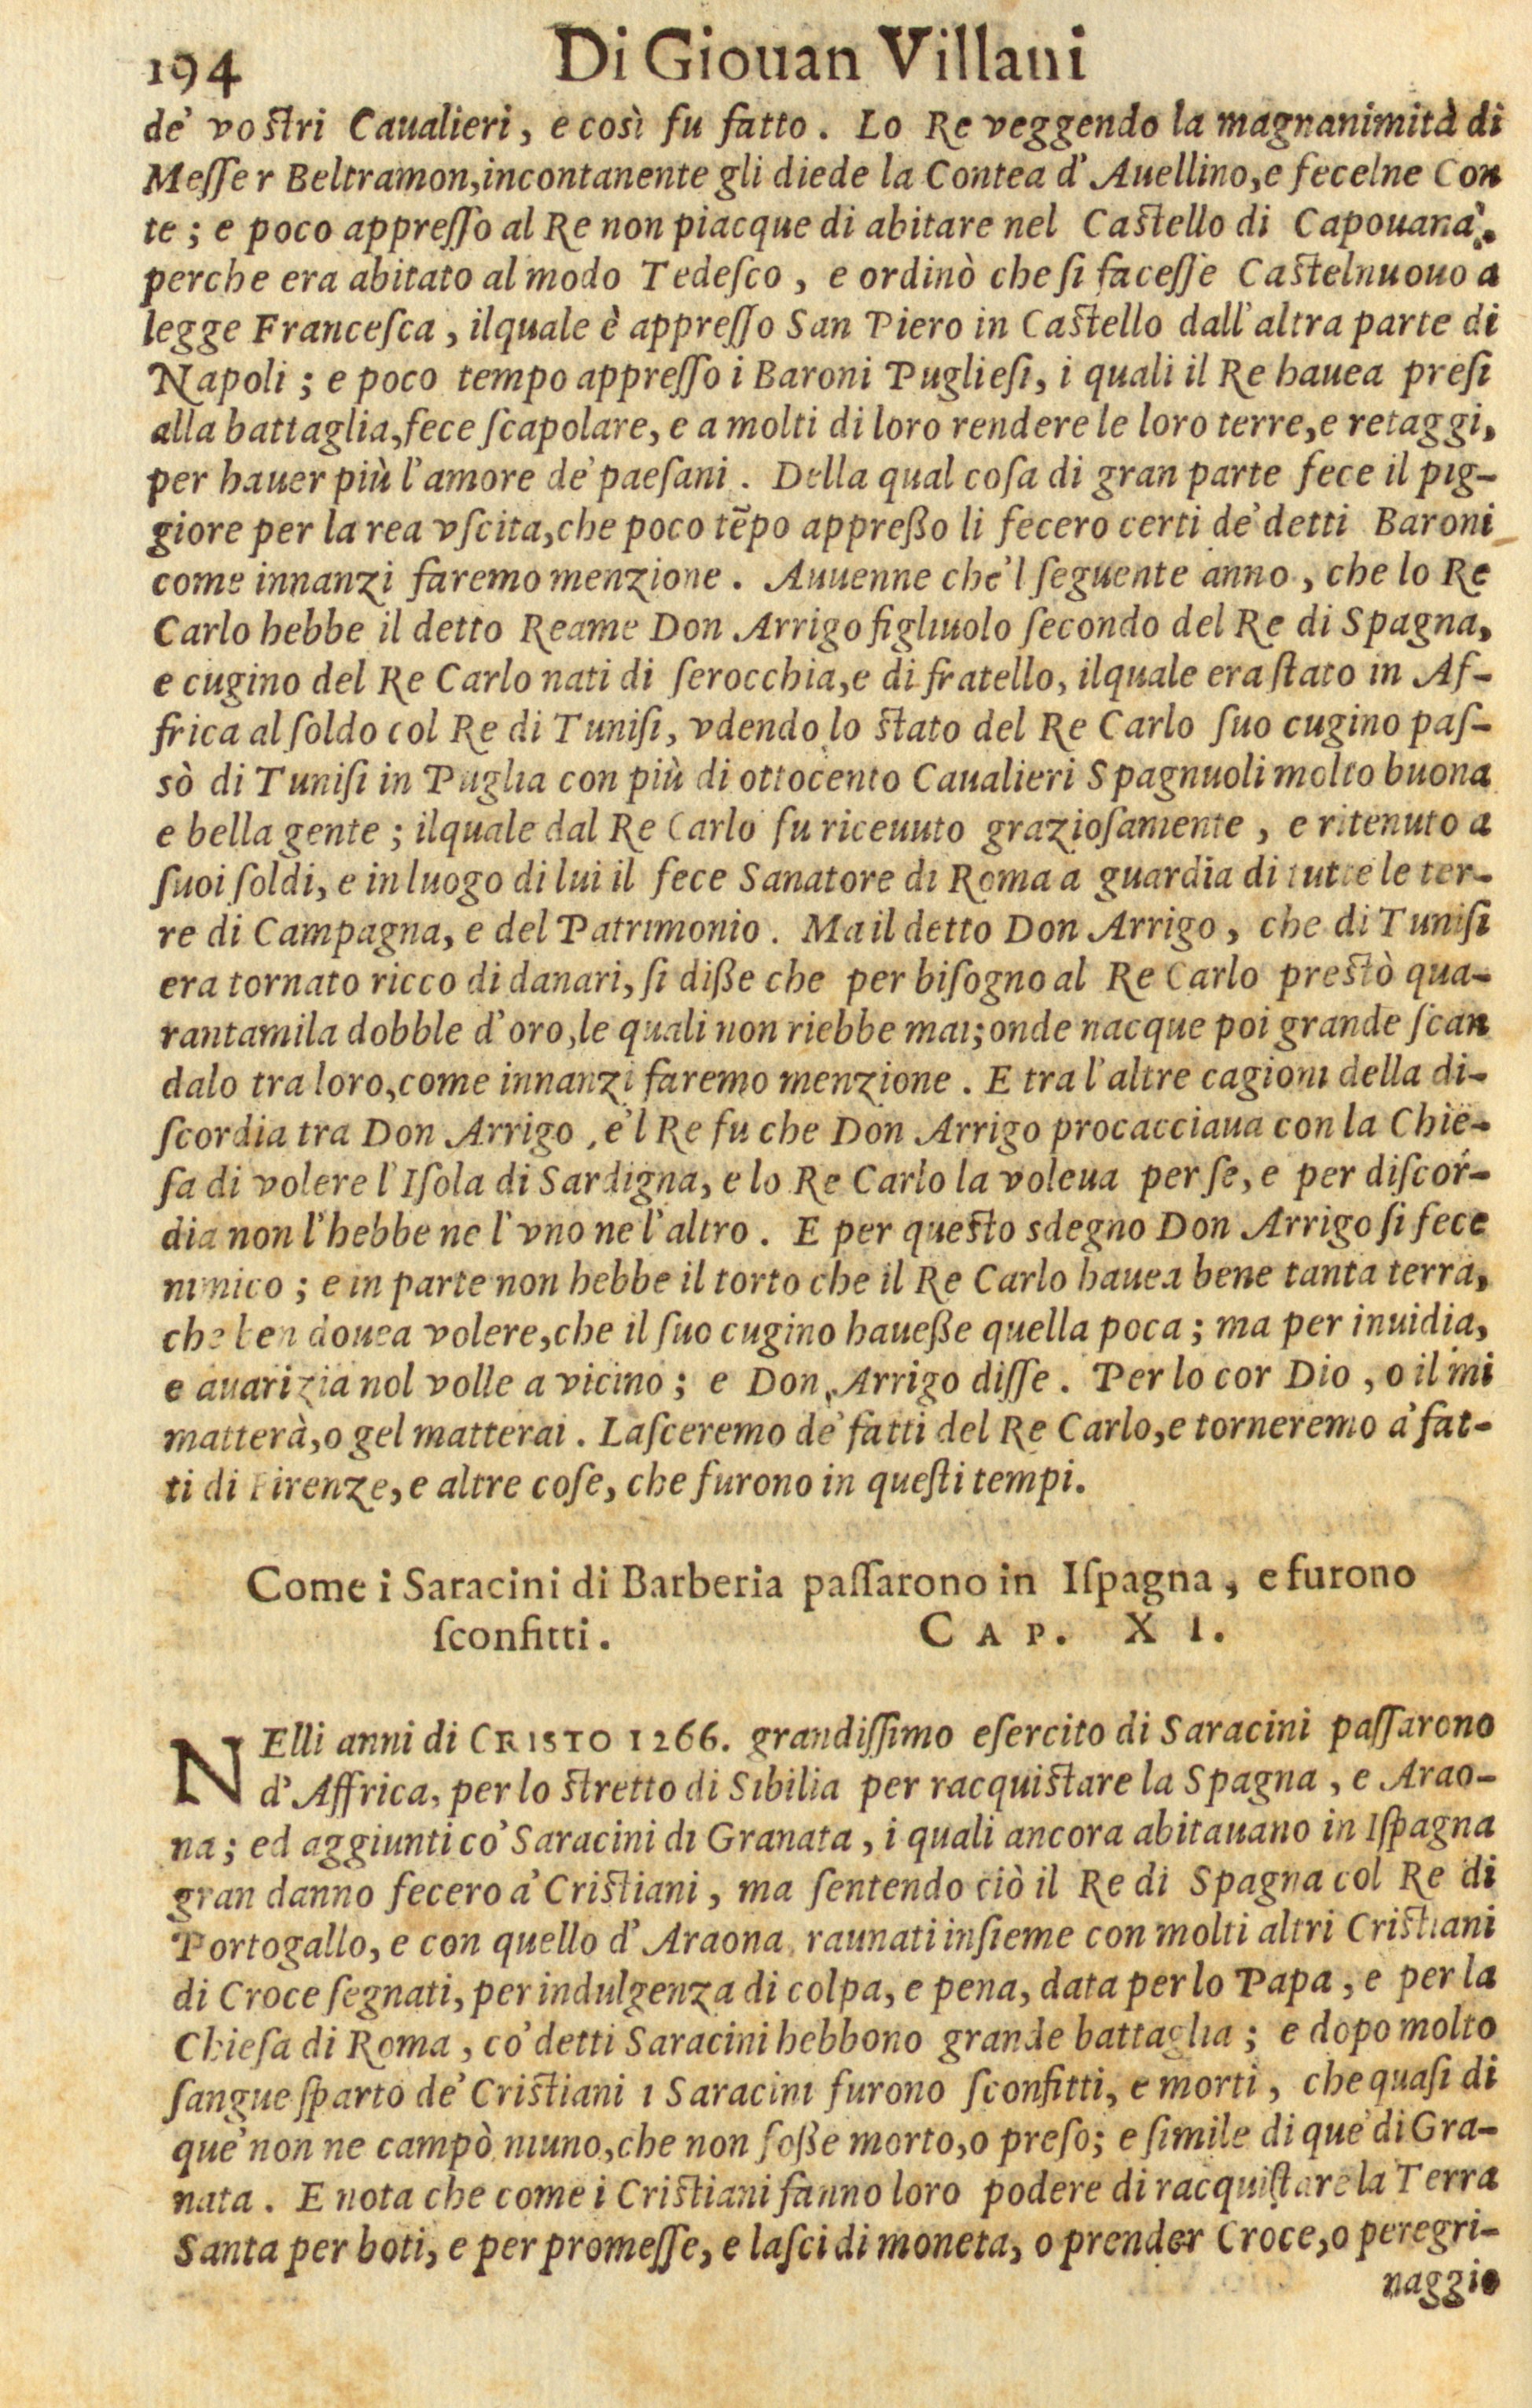 194 Di Giouan Villani
de' vostri Caualieri, e così fu fatto. Lo Re veggendo la magnanimità di
Messer Beltramon, incontanente gli diede la Contea d'Auellino, e fecelne Con
te; e poco appresso al Re non piacque di abitare nel Castello di Capouana,
perche era abitato al modo Tedesco, e ordinò che si facesse Castelnuouo a
legge Francesca, ilquale è appresso San Piero in Castello dall'altra parte di
Napoli; e poco tempo appresso i Baroni Pugliesi, i quali il Re hauea presi
alla battaglia, fece scapolare, e a molti di loro rendere le loro terre, e retaggi,
per hauer più l'amore de' paesani. Della qual cosa di gran parte fece il pig-
giore per la rea vscita, che poco tẽpo appreßo li fecero certi de' detti Baroni
come innanzi faremo menzione. Auuenne che'l seguente anno, che lo Re
Carlo hebbe il detto Reame Don Arrigo figliuolo secondo del Re di Spagna,
e cugino del Re Carlo nati di serocchia, e di fratello, ilquale era stato in Af-
frica al soldo col Re di Tunisi, vdendo lo stato del Re Carlo suo cugino pas-
sò di Tunisi in Puglia con più di ottocento Caualieri Spagnuoli molto buona
e bella gente; ilquale dal Re Carlo fu riceuuto graziosamente, e ritenuto a
suoi soldi, e in luogo di lui il fece Sanatore di Roma a guardia di tutte le ter-
re di Campagna, e del Patrimonio. Ma il detto Don Arrigo, che di Tunisi
era tornato ricco di danari, si diße che per bisogno al Re Carlo prestò qua-
rantamila dobble d'oro, le quali non riebbe mai; onde nacque poi grande scan
dalo tra loro, come innanzi faremo menzione. E tra l'altre cagioni della di-
scordia tra Don Arrigo, e'l Re fu che Don Arrigo procacciaua con la Chie-
sa di volere l'Isola di Sardigna, e lo Re Carlo la voleua per se, e per discor-
dia non l'hebbe ne l'vno ne l'altro. E per questo sdegno Don Arrigo si fece
nimico; e in parte non hebbe il torto che il Re Carlo hauea bene tanta terra,
che ben douea volere, che il suo cugino haueße quella poca; ma per inuidia,
e auarizia nol volle a vicino; e Don Arrigo disse. Per lo cor Dio, o il mi
matterà, o gel matterai. Lasceremo de' fatti del Re Carlo, e torneremo a' fat-
ti di Firenze, e altre cose, che furono in questi tempi.
Come i Saracini di Barberia passarono in Ispagna, e furono
sconfitti. CAP. XI.
NElli anni di CRISTO 1266. grandissimo esercito di Saracini passarono
d'Affrica, per lo stretto di Sibilia per racquistare la Spagna, e Arao-
na; ed aggiunti co' Saracini di Granata, i quali ancora abitauano in Ispagna
gran danno fecero a' Cristiani, ma sentendo ciò il Re di Spagna col Re di
Portogallo, e con quello d'Araona, raunati insieme con molti altri Cristiani
di Croce segnati, per indulgenza di colpa, e pena, data per lo Papa, e per la
Chiesa di Roma, co' detti Saracini hebbono grande battaglia; e dopo molto
sangue sparto de' Cristiani i Saracini furono sconfitti, e morti, che quasi di
que' non ne campò niuno, che non foße morto, o preso; e simile di que' di Gra-
nata. E nota che come i Cristiani fanno loro podere di racquistare la Terra
Santa per boti, e per promesse, e lasci di moneta, o prender Croce, o peregri-
naggio